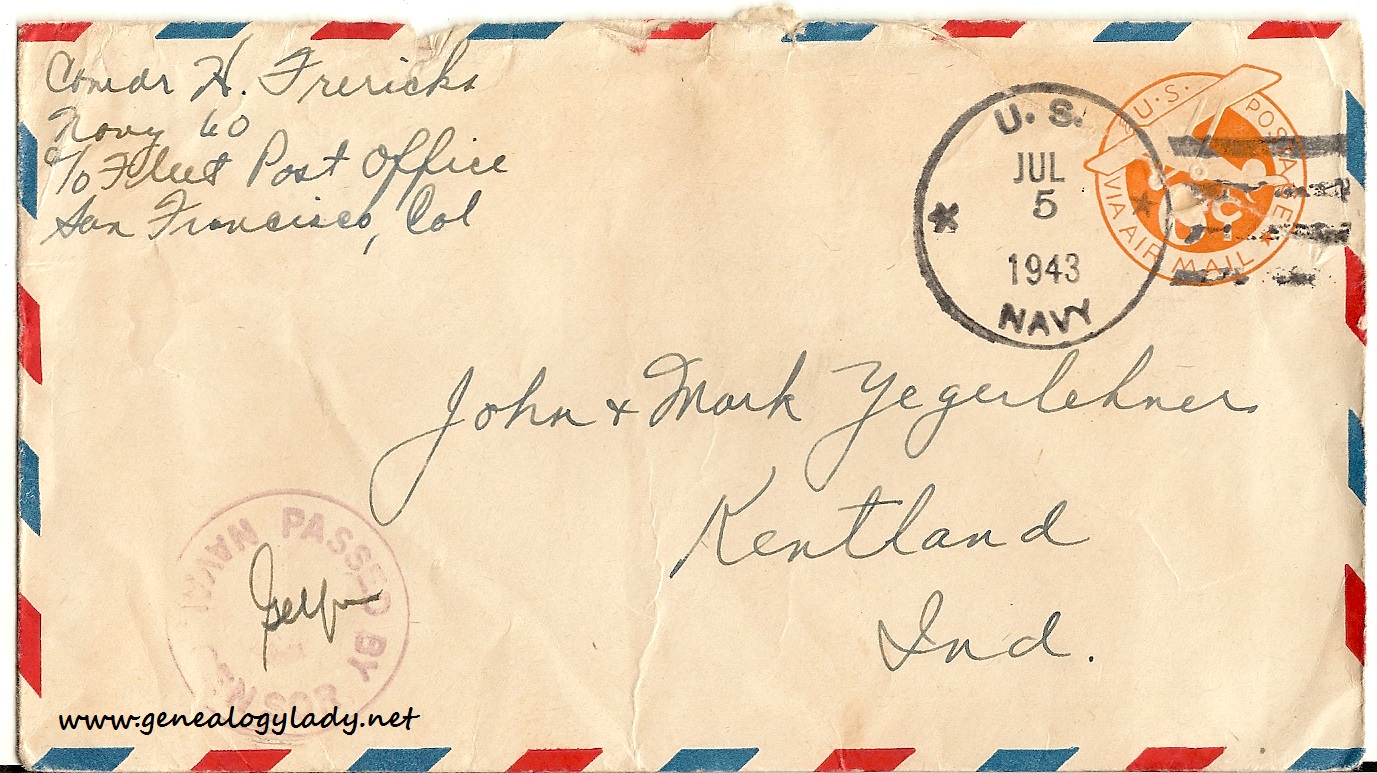 Comdr H. Frericks
Navy 60
c/o Fleet Post Office
San Francisco, Cal
U. S.
JUL
5
1943
NAVY
U.S. POSTAGE
6¢
VIA AIR MAIL
John & Mark Yegerlehner
Kentland
Ind.
PASSED BY NAVAL CENSOR
www.genealogylady.net